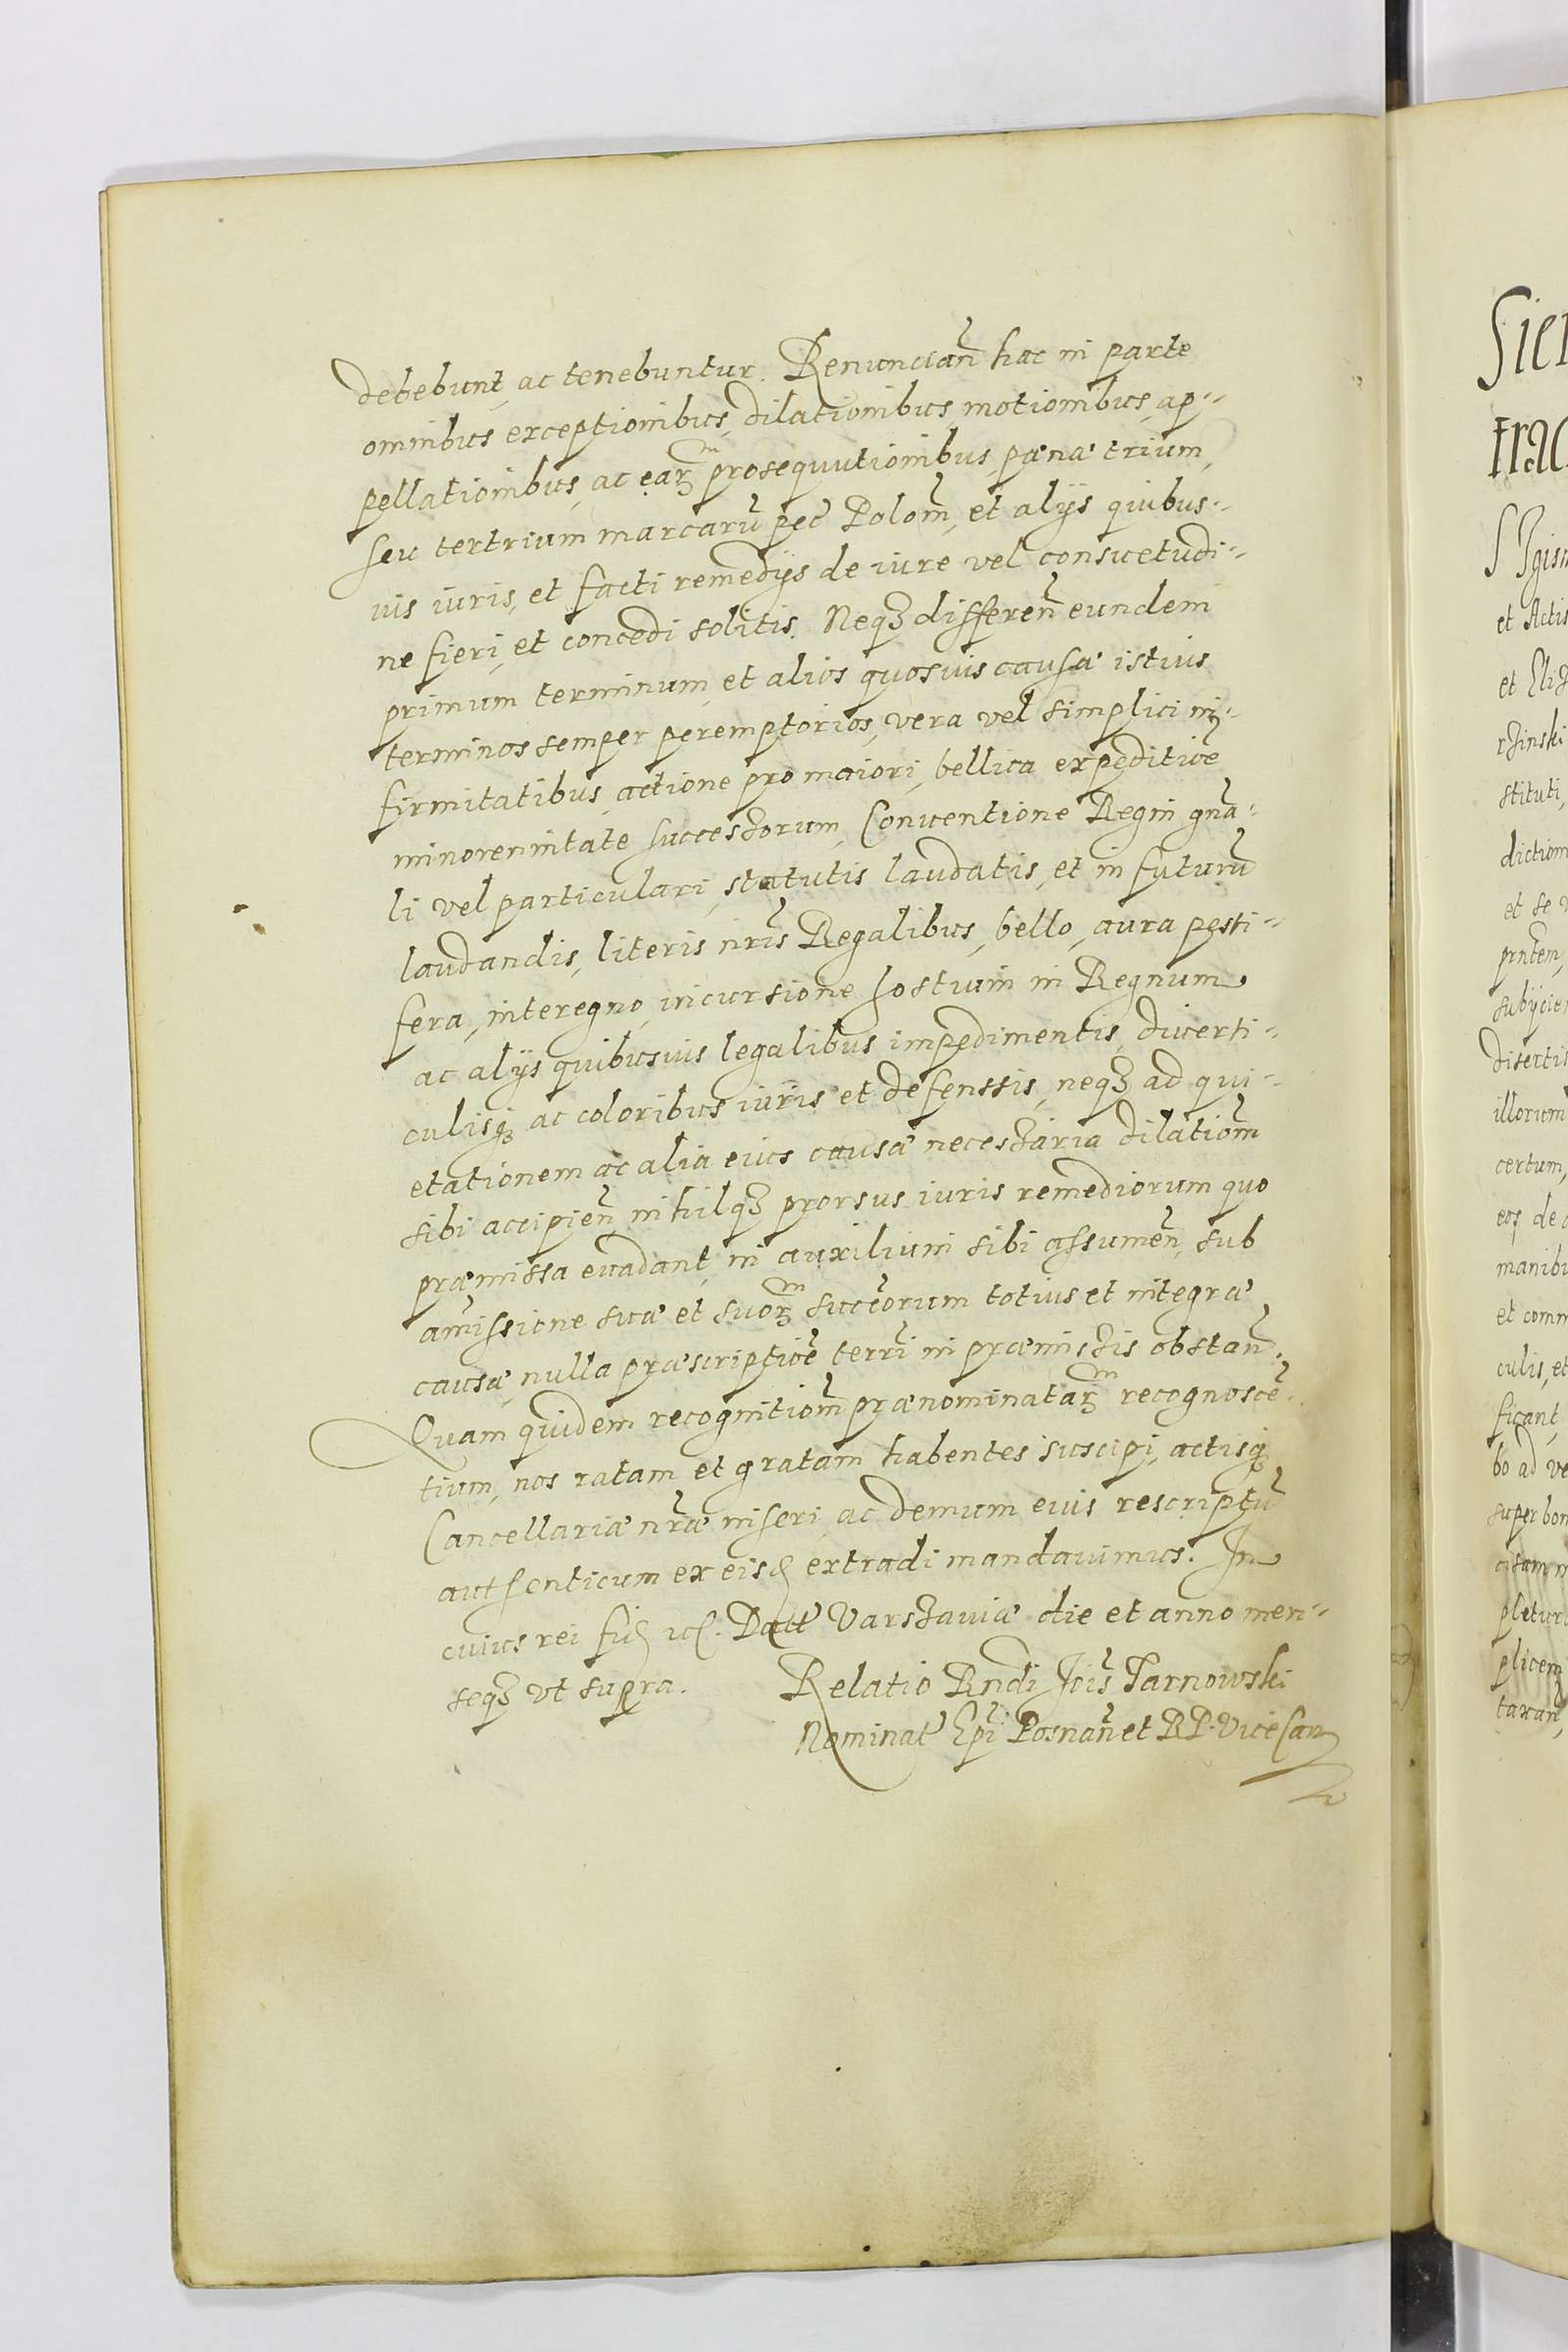 debebunt, ac tenebuntur. Renuncian̄ hac in parte
omnibus exceptionibus, dilationibus, motionibus, ap-
pellationibus, ac earꝫm prosequutionibus, pænæ trium,
seu tertrium marcarū pec Polom̄, et alijs quibus-
vis iuris, et facti remedijs de iure vel consuetudi-
ne fieri, et concedi solitis. Neqꝫ differen̄ eundem
primum terminum, et alios quosvis causæ istius
terminos semper peremptorios, vera vel simplici in-
firmitatibus, actione pro maiori, bellica expeditiōe
minorennitate successorum, Conventione Regni gn̄a-
li vel particulari, statutis laudatis, et in futurū
laudandis, literis nr̄is Regalibus, bello, aura pesti-
fera, interegno, incursione hostium in Regnum
ac alijs quibusvis legalibus impedimentis, diverti-
culisqꝫ ac coloribus iuris et defenssis, neqꝫ ad qui-
etationem ac alia eius causæ necessaria dilatiom̄
sibi accipien̄, nihilqꝫ prorsus iuris remediorum quo
præmissa evadant, in auxilium sibi assumen̄, sub
amissione suæ et suorꝫm succēorum totius et integræ
causæ, nulla præscriptiōe terrī in præmissis obstan̄.
Quam quidem recognitiom̄ prænominatarꝫm recognoscē-
tium, nos ratam et gratam habentes suscipi, actisqꝫ
Cancellariæ nr̄æ inseri, ac demum eius rescriptū
authenticum ex eisd extradi mandavimus. In
cuius rei fid etc. Datt Varssaviæ die et anno men-
seqꝫ vt supra.
Relatio Rndi Jōis Tarnowski
Nominat Ep̄i Posnan̄ et RP. ViceCan